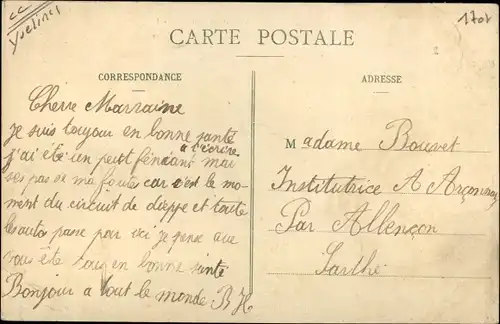 cc
Yvelines
1701
CARTE POSTALE
CORRESPONDANCE
ADRESSE
Cherre Marraine
je suis toujour en bonne santé
a t'écrire
j'ai été un petit fénéant mai
ses pas sa ma faute car c'est le mo-
ment du circuit de dieppe et toute
les autos passe par ici je pense que
vous ête tous en bonne sante
Bonjour a tout le monde B H
Madame Bouvet
Institutrice A Arçonnay
Par Allençon
Sarthe